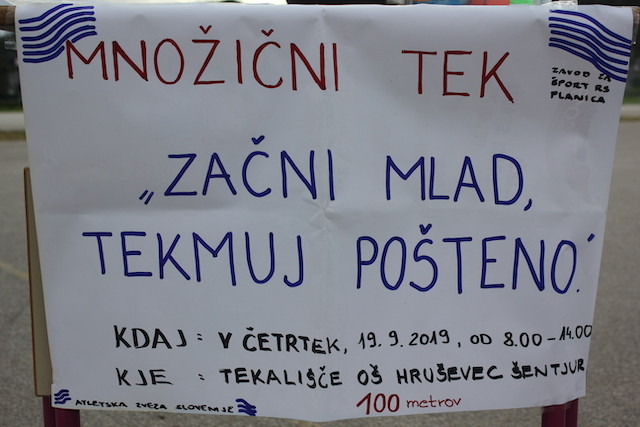 MNOŽIČNI TEK
ZAVOD ZA
ŠPORT RS
PLANICA
„ZAČNI MLAD,
TEKMUJ POŠTENO.“
KDAJ : V ČETRTEK, 19.9.2019, OD 8.00 - 14.00
KJE : TEKALIŠČE OŠ HRUŠEVEC ŠENTJUR
ATLETSKA ZVEZA SLOVENIJE
100 metrov